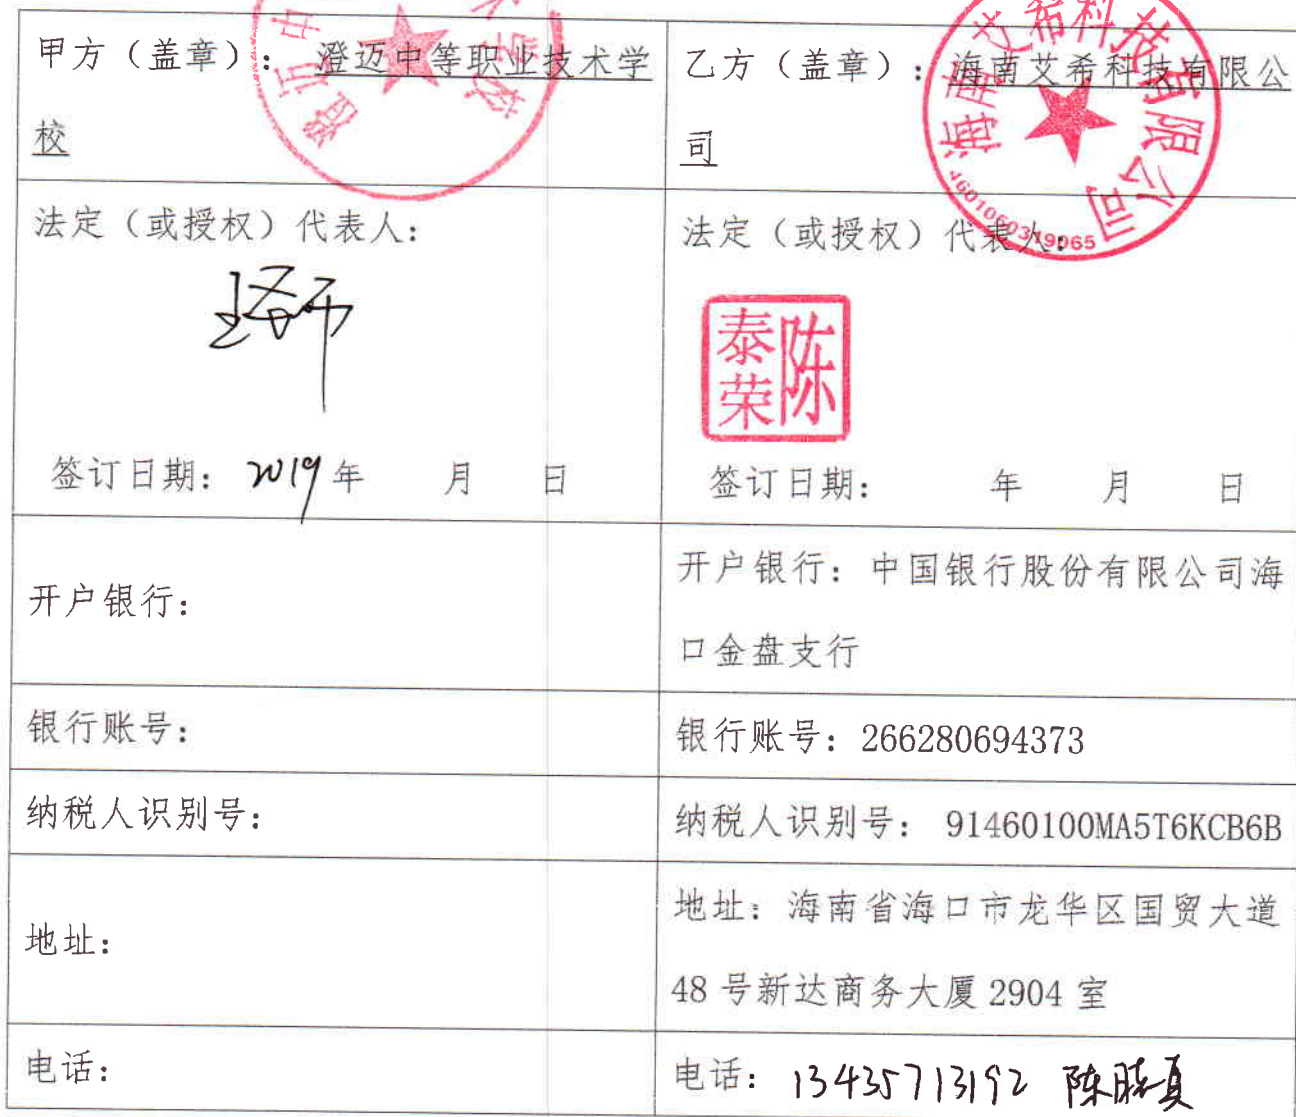 甲方（盖章）：澄迈中等职业技术学
校
乙方（盖章）：海南艾希科技有限公
司
海南艾希科技有限公司
4601060319065
法定（或授权）代表人：
签订日期：2019年 月 日
法定（或授权）代表人：
陈泰荣
签订日期： 年 月 日
开户银行：
开户银行：中国银行股份有限公司海
口金盘支行
银行账号：
银行账号：266280694373
纳税人识别号：
纳税人识别号： 91460100MA5T6KCB6B
地址：
地址：海南省海口市龙华区国贸大道
48 号新达商务大厦 2904 室
电话：
电话：13435713192 陈